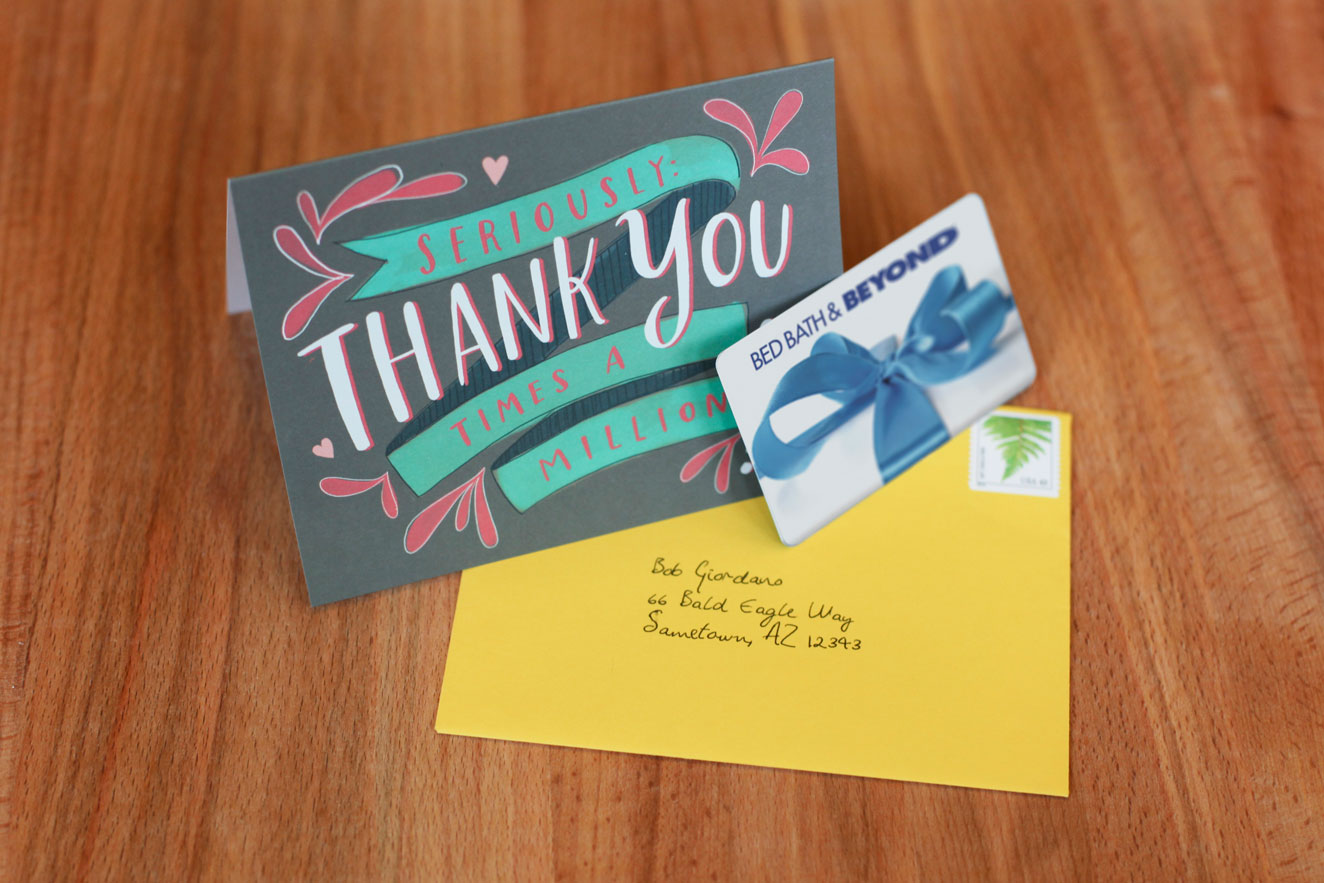 SERIOUSLY:
THANK YOU
TIMES A
MILLION
BED BATH & BEYOND
Bob Giordano
66 Bald Eagle Way
Sametown, AZ 12343